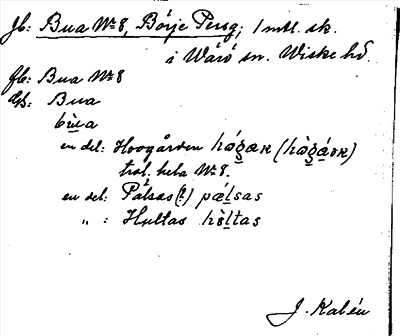 Jb: Bua Nr 8, Börje Persg; 1 mtl. sk.
i Wärö sn. Wiske hd.
fb: Bua Nr 8
Us: Bua
bu̇a
en del: Hovgården hóg̬aʀ (hòg̬áʀ)
trol. hela Nr 8.
en del: Pålsas (?) pǽl̬sas
„ : Hultas hèl̬tas
J. Kalén